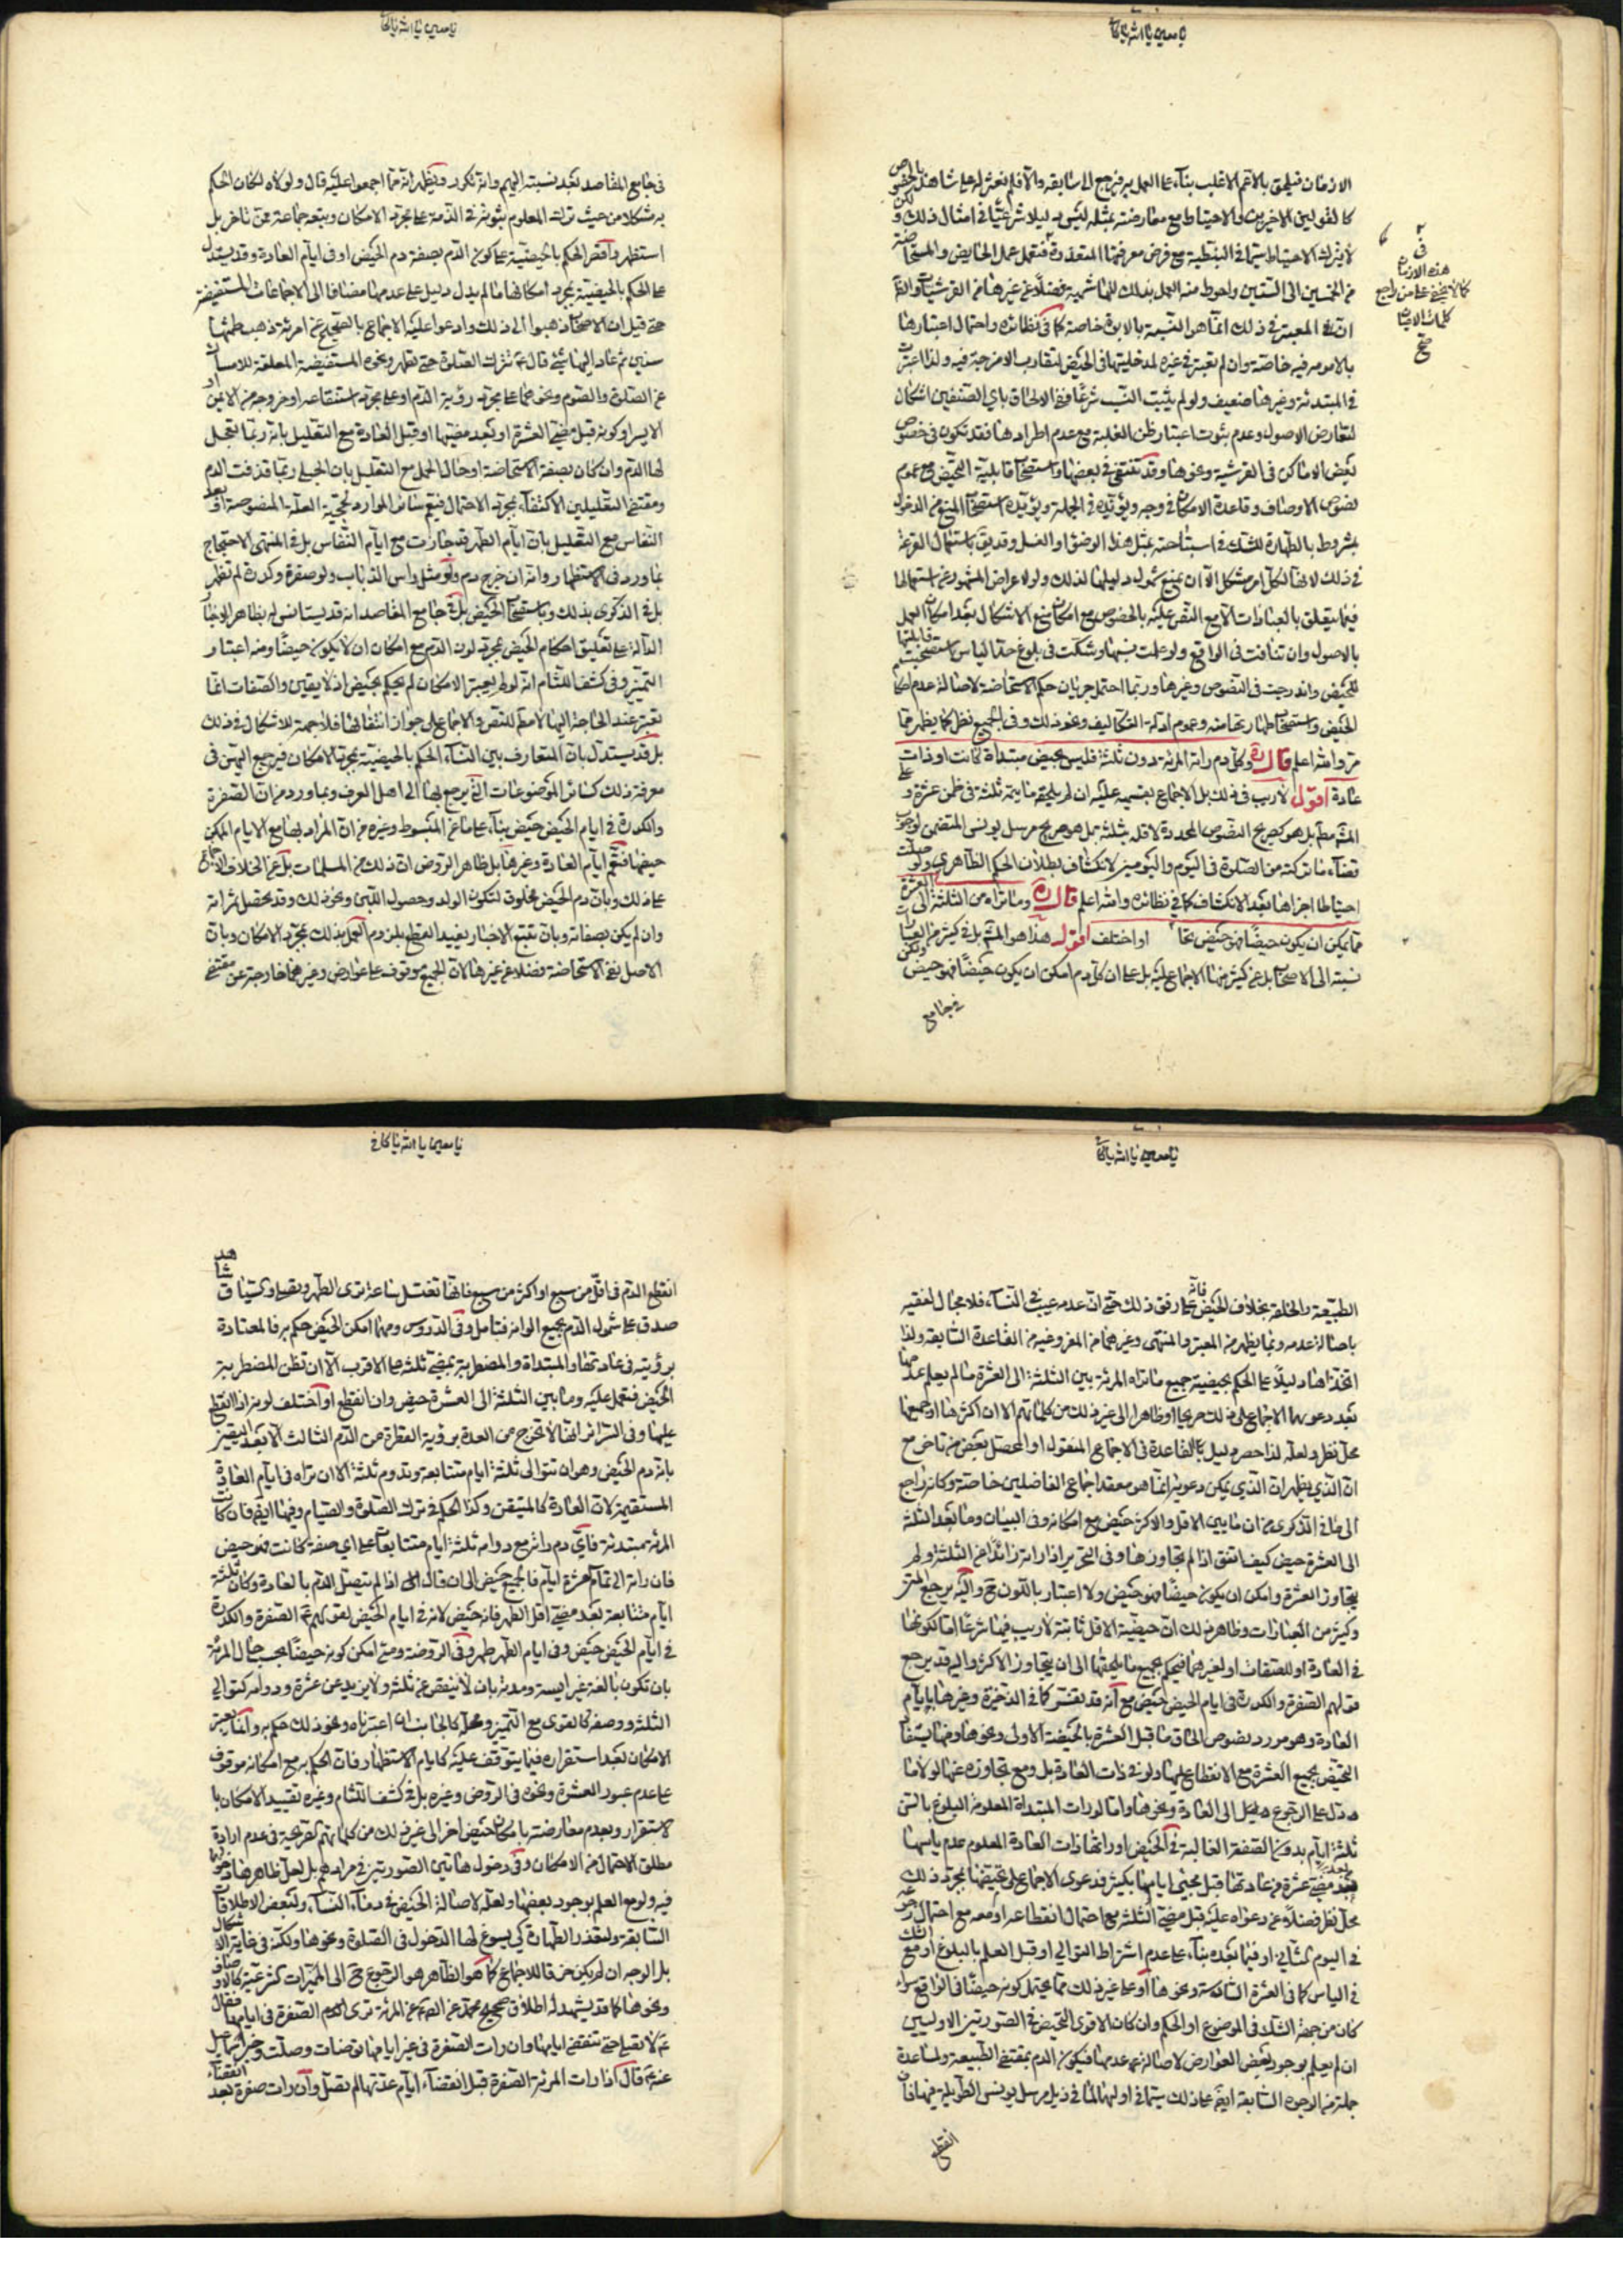 يا معين يا الله يا كافي
الازمان فيلحق بالاعم الاغلب بناء على العمل به فيرجع الى سابقه والا فلم نعثر له على شاهد بالخصوص
كالقولين الاخيرين والاحتياط مع معارضته بمثله ليس دليلا شرعيا في امثال ذلك و
لا يترك الاحتياط سيما في النبطية مع فرض معرفتها المتعذرة فتعمل عمل الحايض والمستحاضة
من الخمسين الى الستين واحوط منه العمل بذلك للهاشمية فضلا عن غيرها من القرشيات
ان المعتبر في ذلك انما هو النسبة بالابوة خاصة كما في نظائره واحتمال اعتبارها
بالامومة فيه خاصة وان لم تعتبر في غيره لمدخليتها في الحيض لتقارب الامزجة فيه ولذا اعتبرت
في المبتدئة وغيرها ضعيف ولو لم يثبت النسب شرعا ففي الالحاق باي الصنفين اشكال
لتعارض الاصول وعدم ثبوت اعتبار ظن الغلبة مع عدم اطرادها فقد تكون في خصوص
بعض الاماكن في القرشية ونحوها وقد تنتفي في بعضها واستصحاب قابلية التحيض مع عموم
نصوص الاوصاف وقاعدة الامكان في وجه ويؤيده في الجملة ويؤيده استصحاب المنع من الدخول
بمشروط بالطهارة للشك في استباحته بمثل هذا الوضوء او الغسل وقد يق باستعمال القرعة
في ذلك لانها لكل امر مشكل الا ان يمنع شمول دليلها لذلك ولو لاعراض المشهور عن استعمالها
فيما يتعلق بالعبادات الا مع النص عليه بالخصوص مع امكان منع الاشكال بعد امكان العمل
بالاصول وان تنافت في الواقع ولو علمت نسبها وشكت في بلوغ حد الياس استصحبت قابليتها
للتحيض واندرجت في النصوص وغيرها وربما احتمل جريان حكم الاستحاضة لاصالة عدم
الحيض واستصحاب طهارتها منه وعموم ادلة التكاليف ونحو ذلك وفي الجميع نظر كما يظهر مما
مر والله اعلم قال ره وكل دم راته المرئة دون ثلثة فليس بحيض مبتداة كانت او ذات
عادة اقول لا ريب في ذلك بل الاجماع بقسميه عليه ان لم يلحقه ما يتمه ثلثة في ضمن عشرة و على
المشهور مطلقا بل هو كصريح النصوص المحددة لاقله بثلثة بل هو صريح مرسل يونس المتضمن لوجوب
قضاء ما تركته من الصلوة في اليوم واليومين لانكشاف بطلان الحكم الظاهري ولو صلت
احتياطا اجزاها بعد الانكشاف كما في نظائره والله اعلم قال ره وما تراه من الثلثة الى العشرة
مما يمكن ان يكون حيضا فهو حيض تجانس او اختلف اقول هذا هو المشهور بل في كثير من العبارات
نسبته الى الاصحاب بل عن كثير منها الاجماع عليه بل على ان كل دم امكن ان يكون حيضا فهو حيض
في جامع
في
هذه الازمان
كما لا يخفى على من راجع
كلمات الاصحاب
صح
يا معين يا الله يا كافي
في جامع المقاصد بعد نسبته اليهم وانه تكرر ويظهر انه مما اجمعوا عليه قال ولولاه لكان الحكم
به مشكلا من حيث ترك المعلوم ثبوته في الذمة على مجرد الامكان وتبعه جماعة ممن تاخر بل
استظهر واقصر الحكم بالحيضية على كون الدم بصفة دم الحيض او في ايام العادة وقد يستدل
على الحكم بالحيضية بمجرد امكانها ما لم يدل دليل على عدمها مضافا الى الاجماعات المستفيضة
حتى قيل ان الاصحاب ذهبوا الى ذلك وادعوا عليه الاجماع بالصحيح عن امرئة ذهب طمثها
سنين ثم عاد اليها شئ قال ع تترك الصلوة حتى تطهر ونحوه المستفيضة المعلقة للامساك
عن الصلوة والصوم ونحوهما على مجرد رؤية الدم او على مجرد استنقاعه او خروجه من الايمن
او الايسر او كونه قبل مضي العشرة او بعد مضيها او قبل العادة مع التعليل بانه ربما تعجل
لها الدم وان كان بصفة الاستحاضة او حال الحمل مع التعليل بان الحبلى ربما قذفت الدم
ومقتضى التعليلين الاكتفاء بمجرد الاحتمال فيتم سائر الموارد لحجية العلة المنصوصة او بعد
النفاس مع التعليل بان ايام الطهر قد جازت مع ايام النفاس بل في المنتهى الاحتجاج
بما ورد في الاستظهار وانه ان خرج دم ولو مثل راس الذباب ولو صفرة وكدرة لم تطهر
بل في الذكرى بذلك وباستصحاب الحيض بل في جامع المقاصد انه قد يستانس له بظاهر الاخبار
الدالة على تعليق احكام الحيض بمجرد لون الدم مع امكان ان لا يكون حيضا ومنه اعتبار
التميز وفي كشف اللثام انه لو لم يعتبر الامكان لم يحكم بحيض اذ لا يقين والصفات انما
تعتبر عند الحاجة اليها لا مطلقا للنص والاجماع على جواز انتفائها فلا جهة للاشكال في ذلك
بل قد يستدل بان المتعارف بين النساء الحكم بالحيضية بمجرد الامكان فيرجع اليهن في
معرفة ذلك كسائر الموضوعات التي يرجع بها الى اهل العرف وبما ورد من ان الصفرة
والكدرة في ايام الحيض حيض بناء على ما عن المبسوط وغيره من ان المراد بها مع الايام الممكن
حيضها فتعم ايام العادة وغيرها بل ظاهر الروض ان ذلك من المسلمات بل عن الخلاف الاجماع
على ذلك وبان دم الحيض مخلوق لتكون الولد وحصول اللبن ونحو ذلك وقد تحصل ثمراته
وان لم يكن بصفاته وبان تتبع الاخبار يفيد القطع بلزوم العمل بذلك بمجرد الامكان وبان
الاصل نفي الاستحاضة فضلا عن غيرها لان الجميع موقوف على عوارض وغيرهما خارجة عن مقتضى
يا معين يا الله يا كافي
الطبيعة والخلقة بخلاف الحيض فانه على وفق ذلك حتى ان عدمه عيب في النساء فلا مجال لنفيه
باصالة عدمه وبما يظهر من المعتبر والمنتهى وغيرهما من المفروغية من القاعدة السابقة ولذا
اتخذاها دليلا على الحكم بحيضية جميع ما تراه المرئة بين الثلثة الى العشرة ما لم يعلم عدمها
بعد دعويهما الاجماع على ذلك صريحا وظاهرا الى غير ذلك من كلماتهم الا ان اكثرها او جميعها
محل نظر ولعله لذا حصر دليل القاعدة في الاجماع المنقول او المحصل بعض من تاخر مع
ان الذي يظهر ان الذي يمكن دعويه انما هو معقد اجماع الفاضلين خاصة وكانه راجع
الى ما في الذكرى من ان ما بين الاقل والاكثر حيض مع امكانه وفي البيان وما بعد الثلثة
الى العشرة حيض كيف اتفق اذا لم يتجاوزها وفي التحرير اذا راته زائدا عن الثلثة ولم
يتجاوز العشرة وامكن ان يكون حيضا فهو حيض ولا اعتبار باللون ح واليه يرجع المتن
وكثير من العبارات وظاهر ذلك ان حيضية الاقل ثابتة لا ريب فيها شرعا اما لكونها
في العادة او للصفات او لغيرهما فيحكم بجميع ما يلحقها الى ان يتجاوز الاكثر واليه قد يرجع
قولهم الصفرة والكدرة في ايام الحيض حيض مع انه قد تفسر كما في الذخيرة وغيرها بايام
العادة وهو مورد نصوص الحاق ما قبل العشرة بالحيضة الاولى ونحوها ومنها يستفاد
التحيض بجميع العشرة مع الانقطاع عليها ولو في ذات العادة بل ومع تجاوزه عنها لولا ما
دل على الرجوع ح الى العادة ونحوها واما لو رات المبتداة المعلومة البلوغ بالسن
ثلثة ايام بدون الصفة الغالبة في الحيض او راتها ذات العادة المعلوم عدم ياسها
بعد مضي عشرة من عادتها قبل مجئ ايامها بكثير فدعوى الاجماع على تحيضها بمجرد ذلك
محل نظر فضلا عن دعواه عليه قبل مضي الثلثة مع احتمال انقطاعه او معه مع احتمال رجوعه
في اليوم الثاني او فيما بعده بناء على عدم اشتراط التوالي او قبل العلم بالبلوغ او مع الشك
في الياس كما في العشرة السادسة ونحوها او على غير ذلك مما يحتمل كونه حيضا في الواقع سواء
كان من جهة الشك في الموضوع او الحكم وان كان الاقوى التحيض في الصورتين الاوليين
ان لم يعلم بوجود بعض العوارض لاصالة عدمها فيكون الدم بمقتضى الطبيعة ولمساعدة
جملة من الوجوه السابقة ايضا على ذلك سيما في اولهما لما في ذيل مرسل يونس الطويلة فيها فان
انقطع
يا معين يا الله يا كافي
انقطع الدم في اقل من سبع او اكثر من سبع فانها تغتسل ساعة ترى الطهر وتصلي
صدق على شمول الدم بجميع الوانه فتامل وفي الدروس ومهما امكن الحيض حكم به فالمعتادة
برؤيته في عادتها والمبتداة والمضطربة بمضي ثلثة على الاقرب الا ان تظن المضطربة
الحيض فتعمل عليه وما بين الثلثة الى العشرة حيض وان انقطع او اختلف لونه اذا انقطع
عليها وفي السرائر انها لا تخرج من العدة برؤية القطرة من الدم الثالث الا بعد اليقين
بانه دم الحيض وهو ان تتوالى ثلثة ايام متتابعة وتدوم ثلثة الا ان تراه في ايام العادة
المستقيمة لان العادة كالمتيقن وكذا الحكم في ترك الصلوة والصيام وفيها ايضا فان كانت
المرئة مبتدئة فاي دم راته مع دوامه ثلثة ايام متتابعات على اي صفة كانت فهو حيض
فان راته الى تمام عشرة ايام فالجميع حيض الى ان قال اذا لم يتصل الدم بالعادة وكان ثلثة
ايام متتابعة بعد مضي اقل الطهر فانه حيض لانه في ايام الحيض لقولهم ع الصفرة والكدرة
في ايام الحيض حيض وفي ايام الطهر طهر وفي الروضة ومتى امكن كونه حيضا بحسب حال المرئة
بان تكون بالغة غير ايسة ومدته بان لا ينقص عن ثلثة ولا يزيد عن عشرة ودوامه كتوالي
الثلثة ووصفه كالقوي مع التميز ومحله كالجانب ان اعتبرناه ونحو ذلك حكم به وانما يعتبر
الامكان بعد استقراره فيما يتوقف عليه كايام الاستظهار فان الحكم به مع امكانه موقوف
على عدم عبور العشرة ونحوه في الروض وغيره بل في كشف اللثام وغيره تقييد الامكان با
لاستقرار وبعدم معارضته بامكان حيض اخر الى غير ذلك من كلماتهم الصريحة في عدم ارادة
مطلق الاحتمال من الامكان وفي دخول هاتين الصورتين في مرادهم بل لعل ظاهرهما دخولهما
فيه ولو مع العلم بوجود بعضها ولعله لاصالة الحيض في دماء النساء ولبعض الاطلاقات
السابقة ولتعذر الطهارة كي يسوغ لها الدخول في الصلوة ونحوها ولكنه في غاية الاشكال
بل الوجه ان لم يكن خرقا للاجماع كما هو الظاهر هو الرجوع ح الى المميزات الشرعية كالاوصاف
ونحوها كما قد يشهد له اطلاق صحيح محمد عن الصادق عن المرئة ترى الدم الصفرة في ايامها فقال
ع لا تصلي حتى تنقضي ايامها وان رات الصفرة في غير ايامها توضات وصلت وخبر اسمعيل
عنه ع قال اذا رات المرئة الصفرة قبل انقضاء ايام عدتها لم تصل وان رات صفرة بعد انقضاء